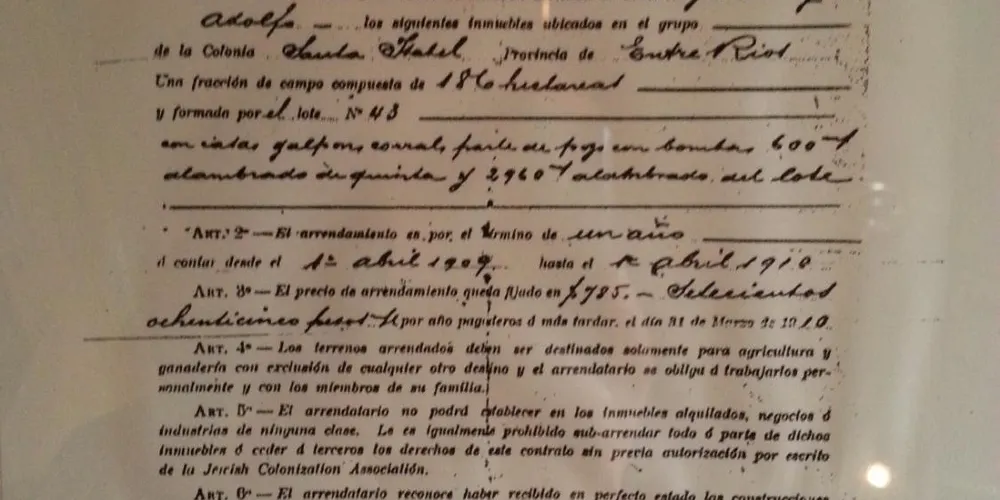 Adolfo — los siguientes inmuebles ubicados en el grupo
de la Colonia Santa Isabel Provincia de Entre Rios
Una fracción de campo compuesta de hectareas
y formada por el lote Nº 43
con casas galpon, corral, parte de pozo con bombas 600
alambrado de quinta y 2960 alambrado del lote
"ART. 2º — El arrendamiento es por el término de un año
á contar desde el 1º abril 1909 hasta el 1º abril 1910
ART. 3º — El precio de arrendamiento queda fijado en $785.— Setecientos
ochenticinco pesos por año pagaderos á más tardar el día 31 de Marzo de 1910
ART. 4º — Los terrenos arrendados deben ser destinados solamente para agricultura y
ganadería con exclusión de cualquier otro destino y el arrendatario se obliga á trabajarlos per-
sonalmente y con los miembros de su familia.
ART. 5º — El arrendatario no podrá establecer en los inmuebles alquilados, negocios ó
industrias de ninguna clase. Le es igualmente prohibido sub-arrendar todo ó parte de dichos
inmuebles ó ceder á terceros los derechos de este contrato sin previa autorización por escrito
de la Jewish Colonization Association.
ART. 6º — El arrendatario reconoce haber recibido en perfecto estado las construcciones